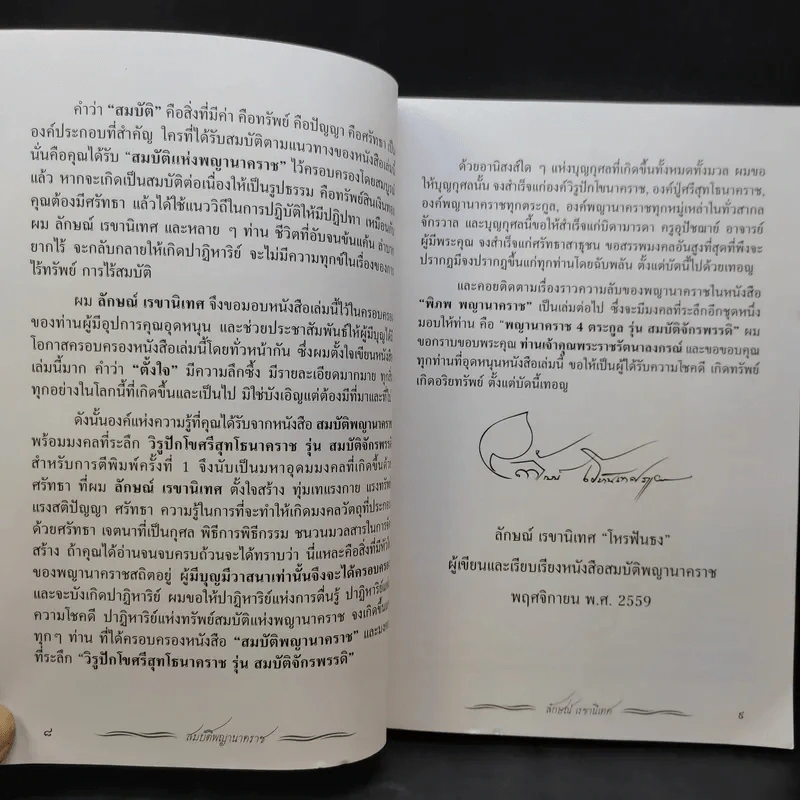 คำว่า "สมบัติ" คือสิ่งที่มีค่า คือทรัพย์ คือปัญญา คือศรัทธา เป็น
องค์ประกอบที่สำคัญ ใครที่ได้รับสมบัติตามแนวทางของหนังสือเล่มนี้
นั่นคือคุณได้รับ "สมบัติแห่งพญานาคราช" ไว้ครอบครองโดยสมบูรณ์
แล้ว หากจะเกิดเป็นสมบัติต่อเนื่องให้เป็นรูปธรรม คือทรัพย์สินเงินทอง
คุณต้องมีศรัทธา แล้วได้ใช้แนววิถีในการปฏิบัติให้มีปฏิปทา เหมือนกับ
ผม ลักษณ์ เรขานิเทศ และหลาย ๆ ท่าน ชีวิตที่อับจนข้นแค้น ลำบาก
ยากไร้ จะกลับกลายให้เกิดปาฏิหาริย์ จะไม่มีความทุกข์ในเรื่องของการ
ไร้ทรัพย์ การไร้สมบัติ
ผม ลักษณ์ เรขานิเทศ จึงขอมอบหนังสือเล่มนี้ไว้ในครอบครอง
ของท่านผู้มีอุปการคุณอุดหนุน และช่วยประชาสัมพันธ์ให้ผู้มีบุญได้มี
โอกาสครอบครองหนังสือเล่มนี้โดยทั่วหน้ากัน ซึ่งผมตั้งใจเขียนหนังสือ
เล่มนี้มาก คำว่า "ตั้งใจ" มีความลึกซึ้ง มีรายละเอียดมากมาย
ทุกอย่างในโลกนี้ที่เกิดขึ้นและเป็นไป มิใช่บังเอิญแต่ต้องมีที่มาและที่ไป
ดังนั้นองค์แห่งความรู้ที่คุณได้รับจากหนังสือ สมบัติพญานาคราช
พร้อมมงคลที่ระลึก วิรูปักโขศรีสุทโธนาคราช รุ่น สมบัติจักรพรรดิ
สำหรับการตีพิมพ์ครั้งที่ 1 จึงนับเป็นมหาอุดมมงคลที่เกิดขึ้นด้วย
ศรัทธา ที่ผม ลักษณ์ เรขานิเทศ ตั้งใจสร้าง ทุ่มเทแรงกาย แรงทรัพย์
แรงสติปัญญา ศรัทธา ความรู้ในการที่จะทำให้เกิดมงคลวัตถุที่ประกอบ
ด้วยศรัทธา เจตนาที่เป็นกุศล พิธีการพิธีกรรม ชนวนมวลสารในการจัด
สร้าง ถ้าคุณได้อ่านจนจบครบถ้วนจะได้ทราบว่า นี่แหละคือสิ่งที่มีหัวใจ
ของพญานาคราชสถิตอยู่ ผู้มีบุญมีวาสนาเท่านั้นจึงจะได้ครอบครอง
และจะบังเกิดปาฏิหาริย์ ผมขอให้ปาฏิหาริย์แห่งการตื่นรู้ ปาฏิหาริย์แห่ง
ความโชคดี ปาฏิหาริย์แห่งทรัพย์สมบัติแห่งพญานาคราช จงเกิดขึ้นแก่
ทุกๆ ท่าน ที่ได้ครอบครองหนังสือ "สมบัติพญานาคราช" และมงคล
ที่ระลึก "วิรูปักโขศรีสุทโธนาคราช รุ่น สมบัติจักรพรรดิ"
๘ สมบัติพญานาคราช
ด้วยอานิสงส์ใด ๆ แห่งบุญกุศลที่เกิดขึ้นทั้งหมดทั้งมวล ผมขอ
ให้บุญกุศลนั้น จงสำเร็จแก่องค์วิรูปักโขนาคราช, องค์ปู่ศรีสุทโธนาคราช,
องค์พญานาคราชทุกตระกูล, องค์พญานาคราชทุกหมู่เหล่าในทั่วสากล
จักรวาล และบุญกุศลนี้ขอให้สำเร็จแก่บิดามารดา ครูอุปัชฌาย์ อาจารย์
ผู้มีพระคุณ จงสำเร็จแก่ศรัทธาสาธุชน ขอสรรพมงคลอันสูงที่สุดที่พึงจะ
ปรากฏมีจงปรากฏขึ้นแก่ทุกท่านโดยฉับพลัน ตั้งแต่บัดนี้ไปด้วยเทอญ
และคอยติดตามเรื่องราวความลับของพญานาคราชในหนังสือ
"พิภพ พญานาคราช" เป็นเล่มต่อไป ซึ่งจะมีมงคลที่ระลึกอีกชุดหนึ่ง
มอบให้ท่าน คือ "พญานาคราช 4 ตระกูล รุ่น สมบัติจักรพรรดิ" ผม
ขอกราบขอบพระคุณ ท่านเจ้าคุณพระราชรัตนาลงกรณ์ และขอขอบคุณ
ทุกท่านที่อุดหนุนหนังสือเล่มนี้ ขอให้เป็นผู้ได้รับความโชคดี เกิดทรัพย์
เกิดอริยทรัพย์ ตั้งแต่บัดนี้เทอญ
ลักษณ์ เรขานิเทศ "โหรฟันธง"
ผู้เขียนและเรียบเรียงหนังสือสมบัติพญานาคราช
พฤศจิกายน พ.ศ. 2559
ลักษณ์ เรขานิเทศ ๙